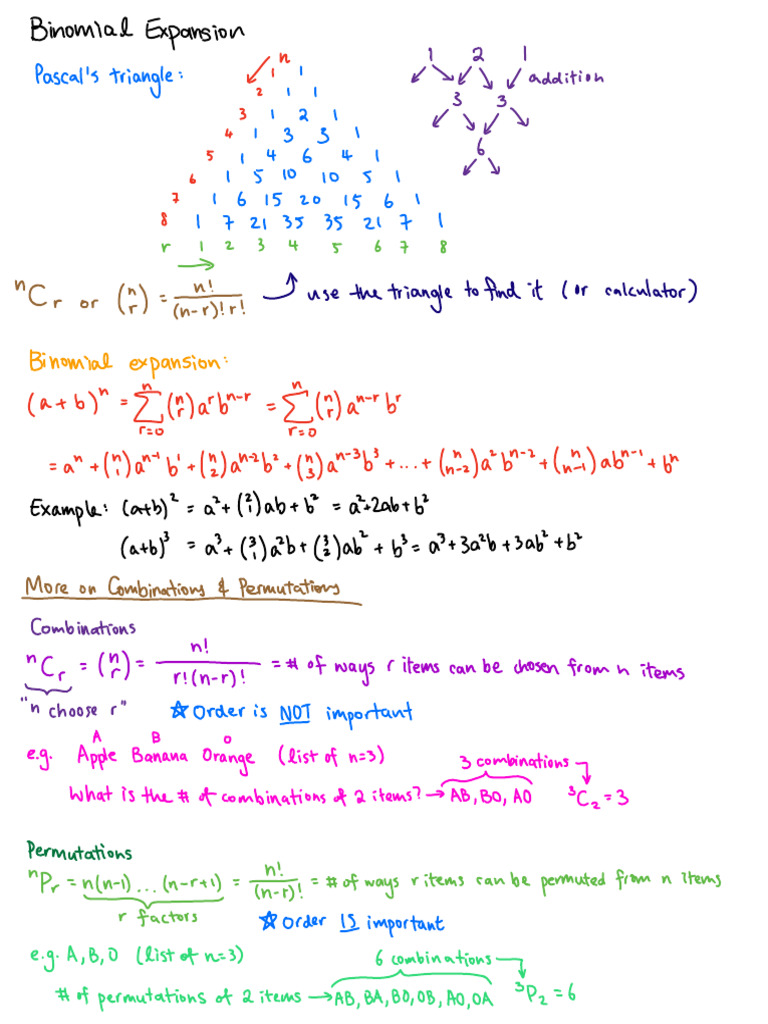 Binomial Expansion
Pascal's triangle:
n
1 1
2 1 1
3 1 2 1
4 1 3 3 1
5 1 4 6 4 1
6 1 5 10 10 5 1
7 1 6 15 20 15 6 1
8 1 7 21 35 35 21 7 1
r 1 2 3 4 5 6 7 8
1 2 1
addition
3 3
6
ⁿCᵣ or (n r) = n!/(n-r)!r! use the triangle to find it (or calculator)
Binomial expansion:
(a+b)ⁿ = Σ_{r=0}^{n} (n r) aʳbⁿ⁻ʳ = Σ_{r=0}^{n} (n r) aⁿ⁻ʳbʳ
= aⁿ + (n 1)aⁿ⁻¹b¹ + (n 2)aⁿ⁻²b² + (n 3)aⁿ⁻³b³ + ... + (n n-2)a²bⁿ⁻² + (n n-1)abⁿ⁻¹ + bⁿ
Example: (a+b)² = a² + (2 1)ab + b² = a²+2ab+b²
(a+b)³ = a³ + (3 1)a²b + (3 2)ab² + b³ = a³+3a²b+3ab²+b²
More on Combinations & Permutations
Combinations
ⁿCᵣ = (n r) = n!/r!(n-r)! = # of ways r items can be chosen from n items
"n choose r" ☆ Order is NOT important
A B O
e.g. Apple Banana Orange (list of n=3)
3 combinations
What is the # of combinations of 2 items? → AB, BO, AO ³C₂ = 3
Permutations
ⁿPᵣ = n(n-1)...(n-r+1) = n!/(n-r)! = # of ways r items can be permuted from n items
r factors ☆ Order IS important
e.g. A, B, O (list of n=3) 6 combinations
# of permutations of 2 items → AB, BA, BO, OB, AO, OA ³P₂ = 6